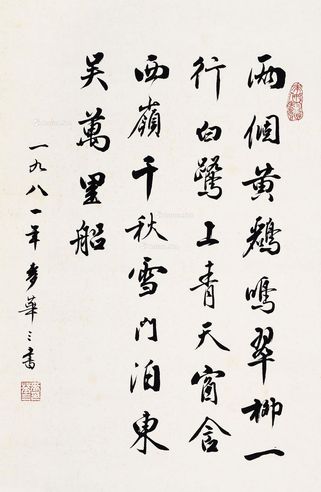 兩個黃鸝鳴翠柳一
行白鷺上青天窗含
西嶺千秋雪門泊東
吴萬里船
一九八一年麥華三書